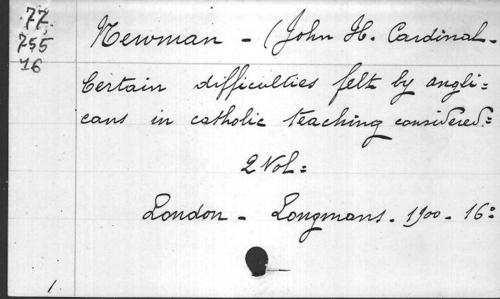 77.
755
16
Newman - (John H. Cardinal -
Certain difficulties felt by angli=
cans in catholic teaching considered.=
2 Vol =
London - Longmans - 1900 - 16:
1.